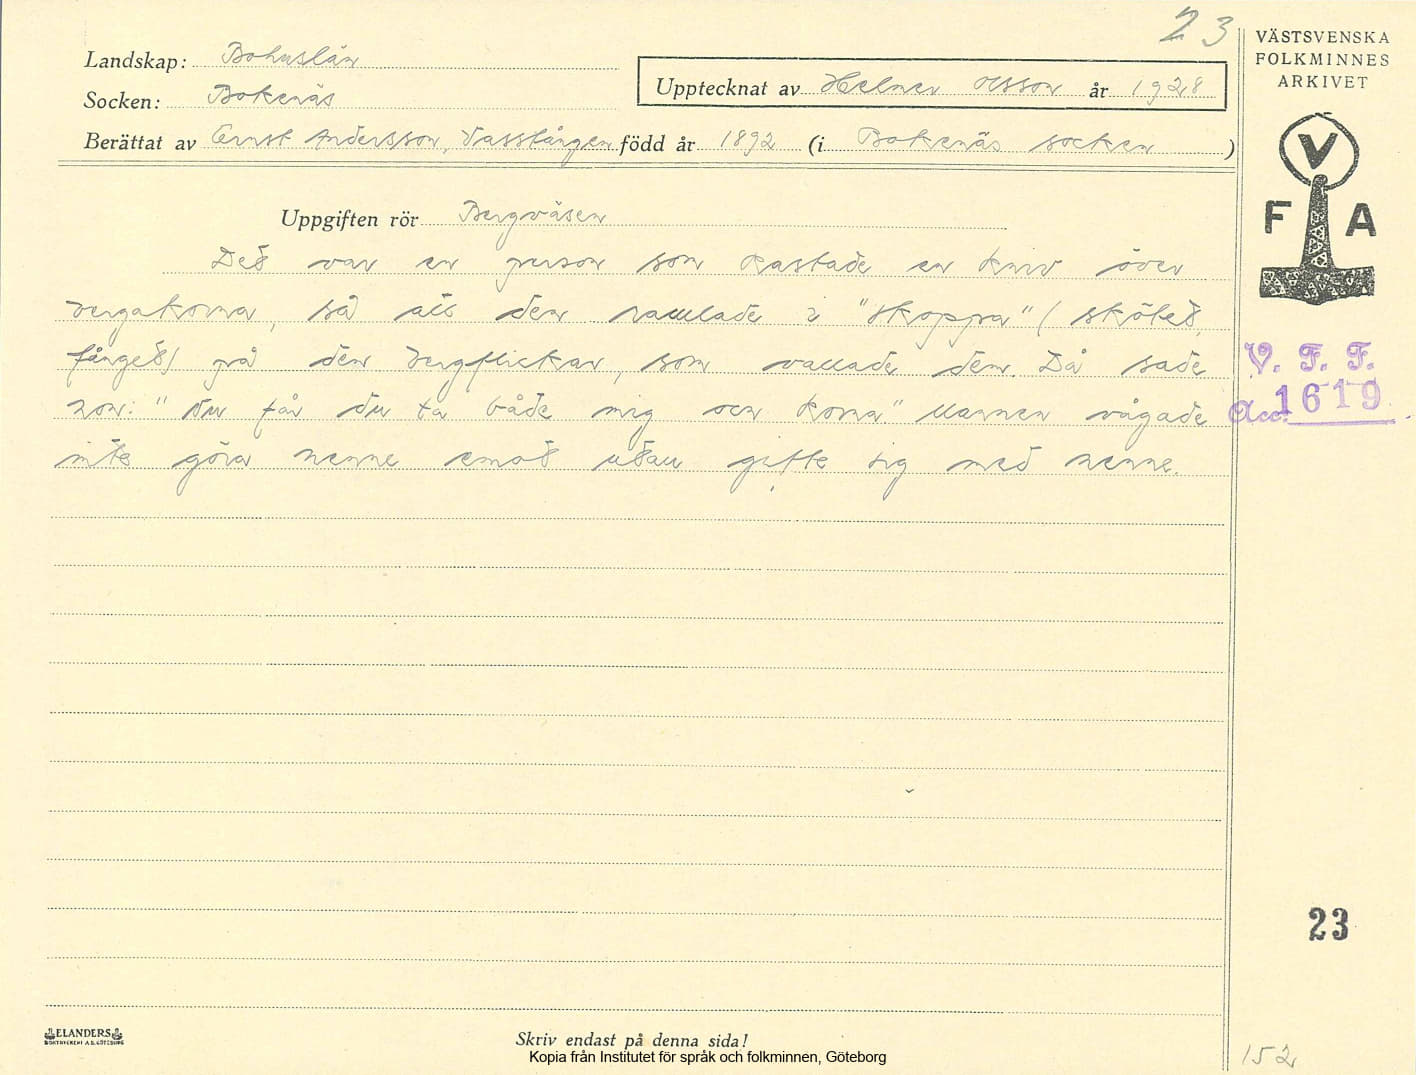 23
VÄSTSVENSKA
FOLKMINNES
ARKIVET
Landskap: Bohuslän
Upptecknat av Helmer Olsson år 1928
Socken: Bokenäs
Berättat av Ernst Andersson, Vasstången född år 1892 (i Bokenäs socken)
V
F A
Uppgiften rör Bergväsen
Det var en person som kastade en kniv över
bergakorna, så att den ramlade i "skoppa" (skötet,
fånget) på den bergflickan, som vallade dem. Då sade
hon: "Nu får du ta både mig och korna." Mannen vågade
inte göra henne emot utan gifte sig med henne.
V. F. F.
Acc. 1619
23
ELANDERS
BOKTRYCKERI A.B. GÖTEBORG
Skriv endast på denna sida!
Kopia från Institutet för språk och folkminnen, Göteborg
152